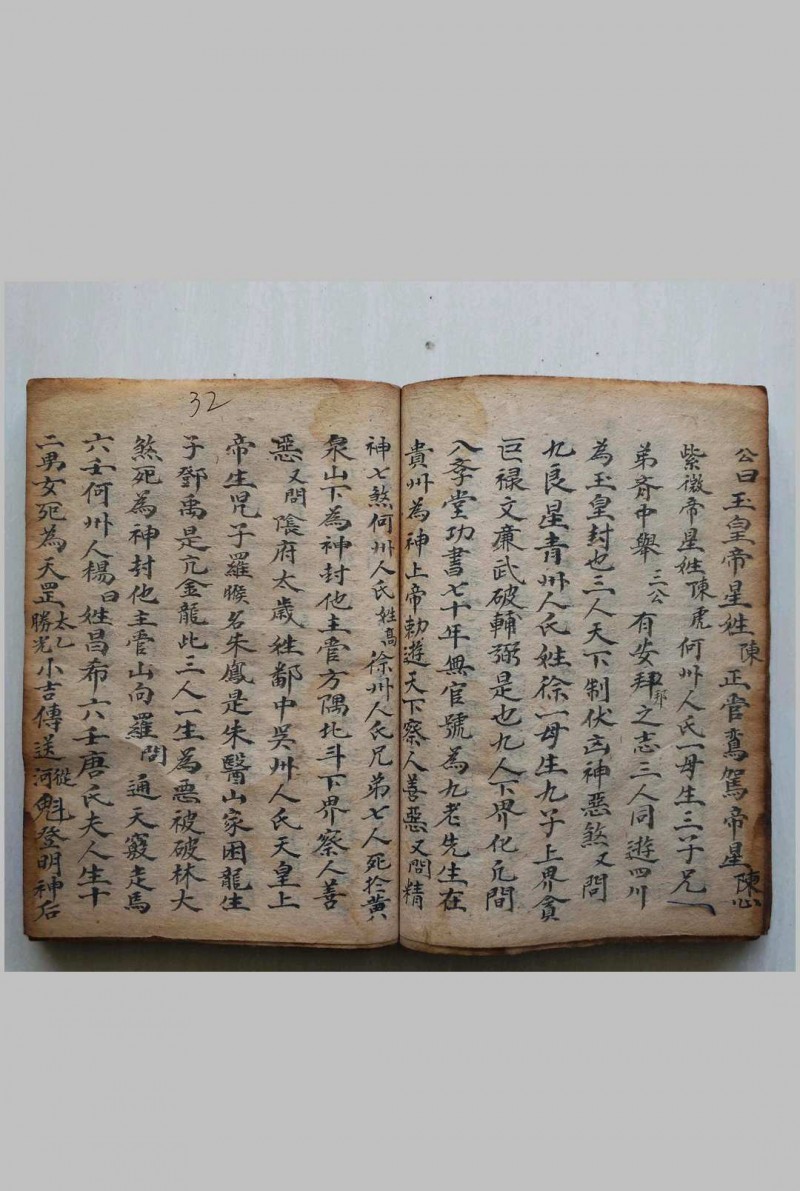 公曰玉皇帝星姓陳正管鸞駕帝星陳心
紫微帝星姓陳虎何州人氏一母生三子兄
弟齊中舉三公有安邦之志三人同遊四川
為玉皇封也三人天下制伏凶神惡煞又問
九良星青州人氏姓徐一母生九子上界貪
巨祿文廉武破輔弼是也九人下界化凡間
入孝堂功書七十年無官號為九老先生在
貴州為神上帝勅遊天下察人善惡又問精
神七煞何州人氏姓高徐州人氏兄弟七人死於黃
泉山下為神封他主管方隅北斗下界察人善
惡又問陰府太歲姓鄱中吳州人氏天皇上
帝生児子羅睺名朱鳳是朱醫山家困龍生
子鄧禹是亢金龍此三人一生為惡被破林大
煞死為神封他主管山向羅問通天竅走馬
六壬何州人楊曰姓昌希六壬唐氏夫人生十
二男女死為天罡太乙勝光小吉傳送從河魁登明神后
32